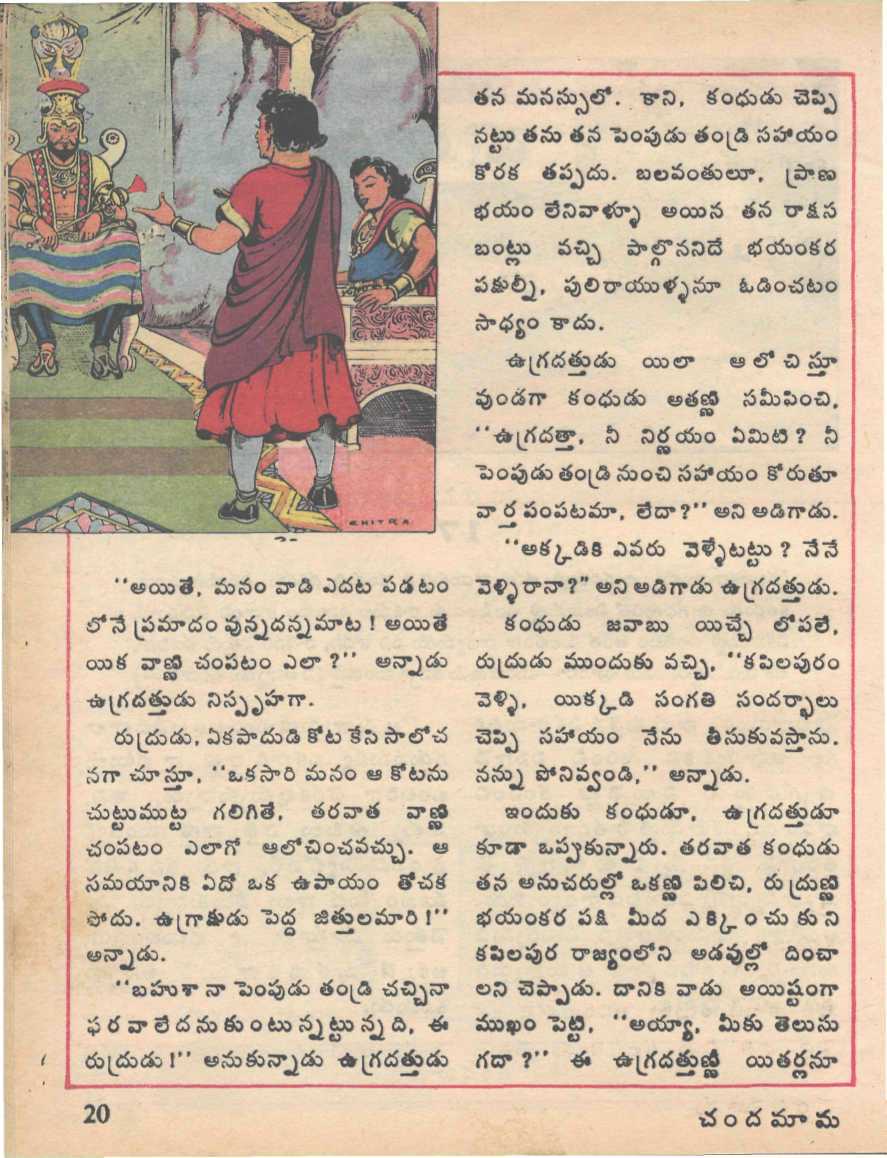 CHITRA
"అయితే, మనం వాడి ఎదట పడటం
లోనే ప్రమాదం వున్నదన్నమాట! అయితే
యిక వాణ్ణి చంపటం ఎలా?" అన్నాడు
ఉగ్రదత్తుడు నిస్పృహగా.
రుద్రుడు, ఏకపాదుడి కోట కేసి సాలోచ
నగా చూస్తూ, "ఒకసారి మనం ఆ కోటను
చుట్టుముట్ట గలిగితే, తరవాత వాణ్ణి
చంపటం ఎలాగో ఆలోచించవచ్చు. ఆ
సమయానికి ఏదో ఒక ఉపాయం తోచక
పోదు. ఉగ్రాక్షుడు పెద్ద జిత్తులమారి!"
అన్నాడు.
"బహుశా నా పెంపుడు తండ్రి చచ్చినా
ఫరవాలేదనుకుంటున్నట్టున్నది, ఈ
రుద్రుడు!" అనుకున్నాడు ఉగ్రదత్తుడు
తన మనస్సులో. కాని, కంధుడు చెప్పి
నట్టు తను తన పెంపుడు తండ్రి సహాయం
కోరక తప్పదు. బలవంతులూ, ప్రాణ
భయం లేనివాళ్ళూ అయిన తన రాక్షస
బంట్లు వచ్చి పాల్గొననిదే భయంకర
పక్షుల్నీ, పులిరాయుళ్ళనూ ఓడించటం
సాధ్యం కాదు.
ఉగ్రదత్తుడు యిలా ఆలోచిస్తూ
వుండగా కంధుడు అతణ్ణి సమీపించి,
"ఉగ్రదత్తా, నీ నిర్ణయం ఏమిటి? నీ
పెంపుడు తండ్రి నుంచి సహాయం కోరుతూ
వార్త పంపటమా, లేదా?" అని అడిగాడు.
"అక్కడికి ఎవరు వెళ్ళేటట్టు? నేనే
వెళ్ళిరానా?" అని అడిగాడు ఉగ్రదత్తుడు.
కంధుడు జవాబు యిచ్చే లోపలే,
రుద్రుడు ముందుకు వచ్చి, "కపిలపురం
వెళ్ళి, యిక్కడి సంగతి సందర్భాలు
చెప్పి సహాయం నేను తీసుకువస్తాను.
నన్ను పోనివ్వండి," అన్నాడు.
ఇందుకు కంధుడూ, ఉగ్రదత్తుడూ
కూడా ఒప్పుకున్నారు. తరవాత కంధుడు
తన అనుచరుల్లో ఒకణ్ణి పిలిచి, రుద్రుణ్ణి
భయంకర పక్షి మీద ఎక్కించుకుని
కపిలపుర రాజ్యంలోని అడవుల్లో దించా
లని చెప్పాడు. దానికి వాడు అయిష్టంగా
ముఖం పెట్టి, "అయ్యా, మీకు తెలుసు
గదా?" ఈ ఉగ్రదత్తుణ్ణి యితర్లనూ
20
చందమామ